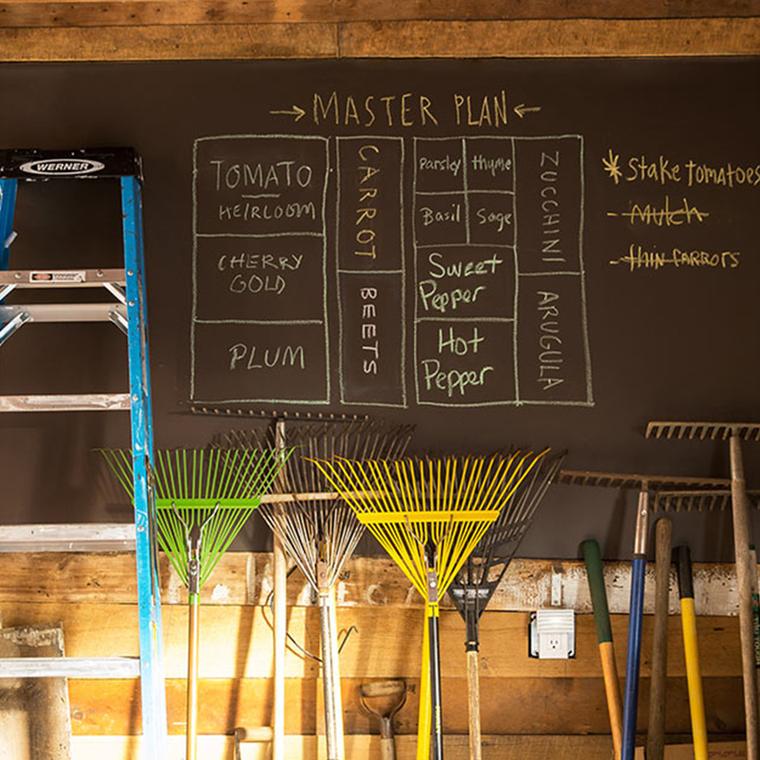 →MASTER PLAN←
WERNER
TOMATO
HEIRLOOM
CHERRY
GOLD
PLUM
CARROT
BEETS
Parsley
thyme
Basil
Sage
Sweet
Pepper
Hot
Pepper
ZUCCHINI
ARUGULA
* Stake tomatoes
- Mulch
- thin carrots